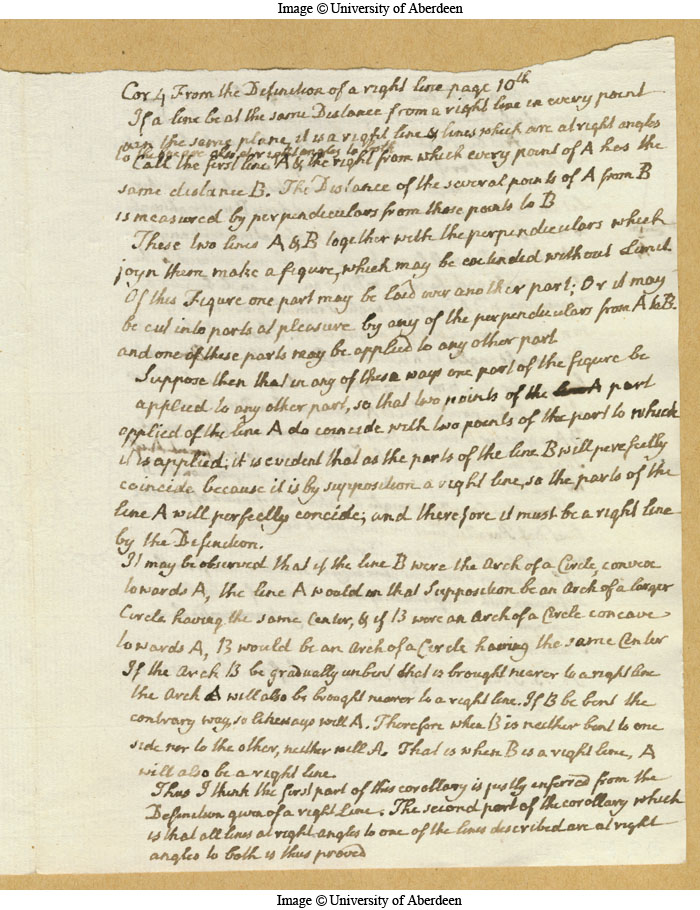 Image © University of Aberdeen
Cor 4 From the Definition of a right line page 10th
If a line be at the same Distance from a right line in every point
in the same plane, it is a right line & lines which are at right angles
to the one are also at right angles to both
Call the first line A & the right from which every point of A has the
same distance B. The Distance of the several points of A from B
is measured by perpendiculars from those points to B
These two lines A & B together with the perpendiculars which
joyn them make a figure, which may be extended without Limit
Of this Figure one part may be laid over another part; Or it may
be cut into parts at pleasure by any of the perpendiculars from A to B.
and one of these parts may be applied to any other part
Suppose then that in any of these ways one part of the figure be
applied to any other part, so that two points of the A part
applied of the line A do coincide with two points of the part to which
it is applied; it is evident that as the parts of the line B will perefectly
coincide because it is by supposition a right line, so the parts of the
line A will perfectly concide; and therefore it must be a right line
by the Definition.
It may be observed that if the line B were the Arch of a Circle, convex
towards A, the line A would in that Supposition be an Arch of a larger
Circle having the same Center, & if B were an Arch of a Circle concave
towards A, B would be an Arch of a Circle having the same Center
If the Arch B be gradually unbent that is brought nearer to a right line
the Arch A will also be brought nearer to a right line. If B be bent the
contrary way, so likeways will A. Therefore when B is neither bent to one
side nor to the other, neither will A. That is when B is a right line, A
will also be a right line.
Thus I think the first part of this corollary is justly inferred from the
Definition given of a right Line. The second part of the corollary which
is that all lines at right angles to one of the lines described are at right
angles to both is thus proved
Image © University of Aberdeen